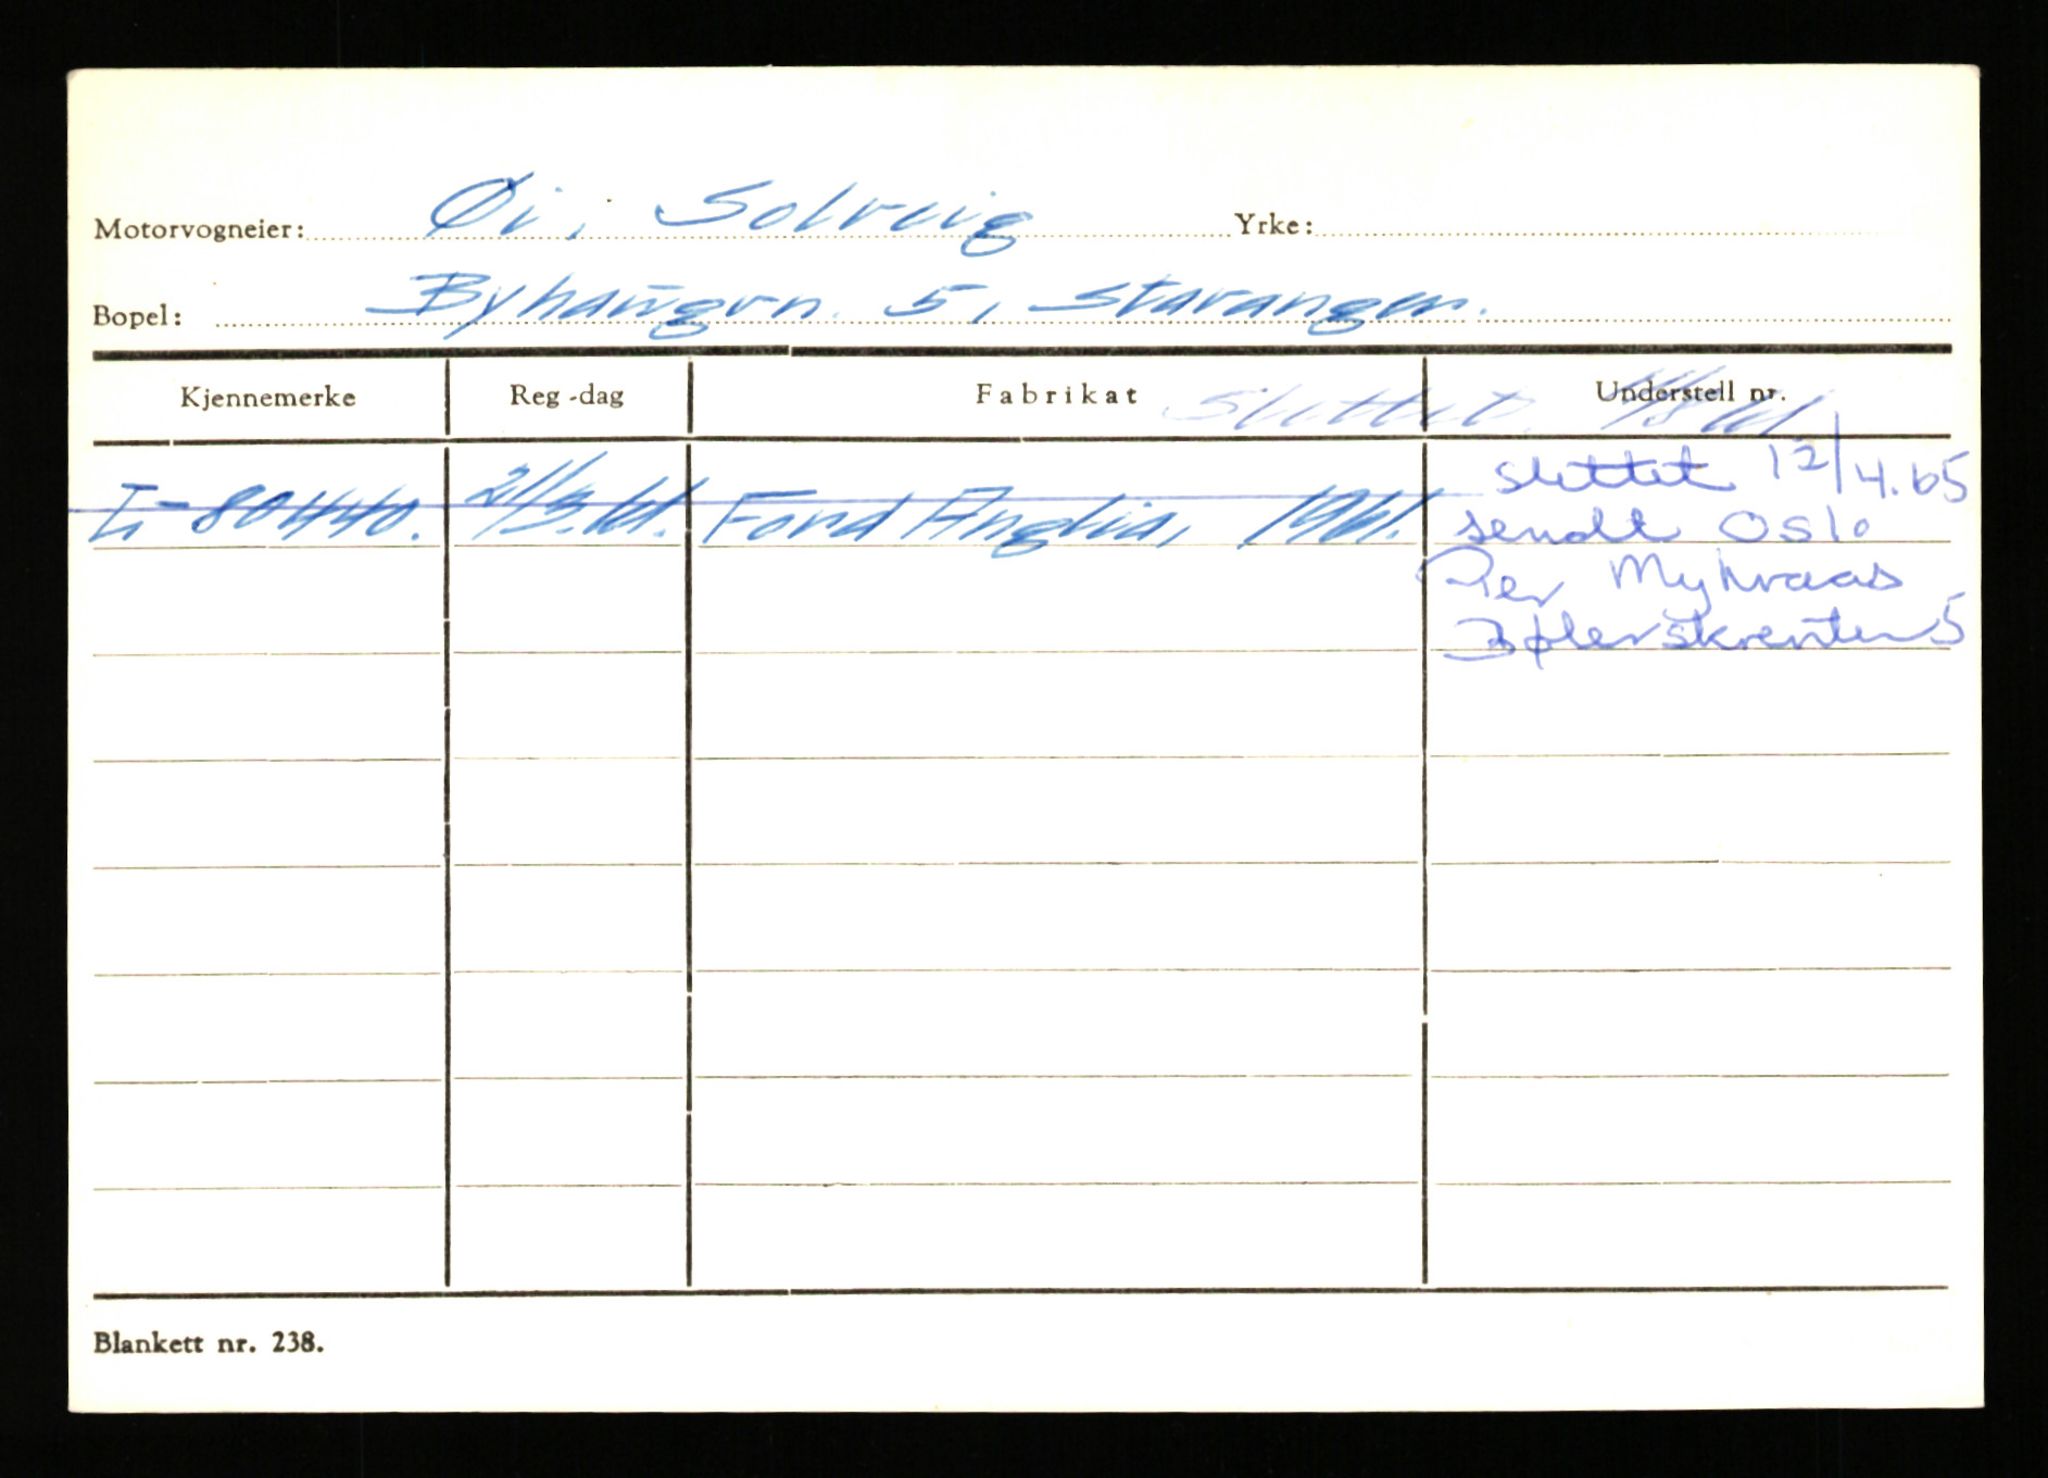 Motorvogneier: Øi, Solveig Yrke:
Bopel: Byhaugvn. 5, Stavanger.
Kjennemerke Reg-dag Fabrikat Understell nr.
Slettet
L-80440. 21/3.61. Ford Anglia, 1961.
slettet 12/4.65
sendt Oslo
Per Myhraas
Bølerskrenten 5
Blankett nr. 238.